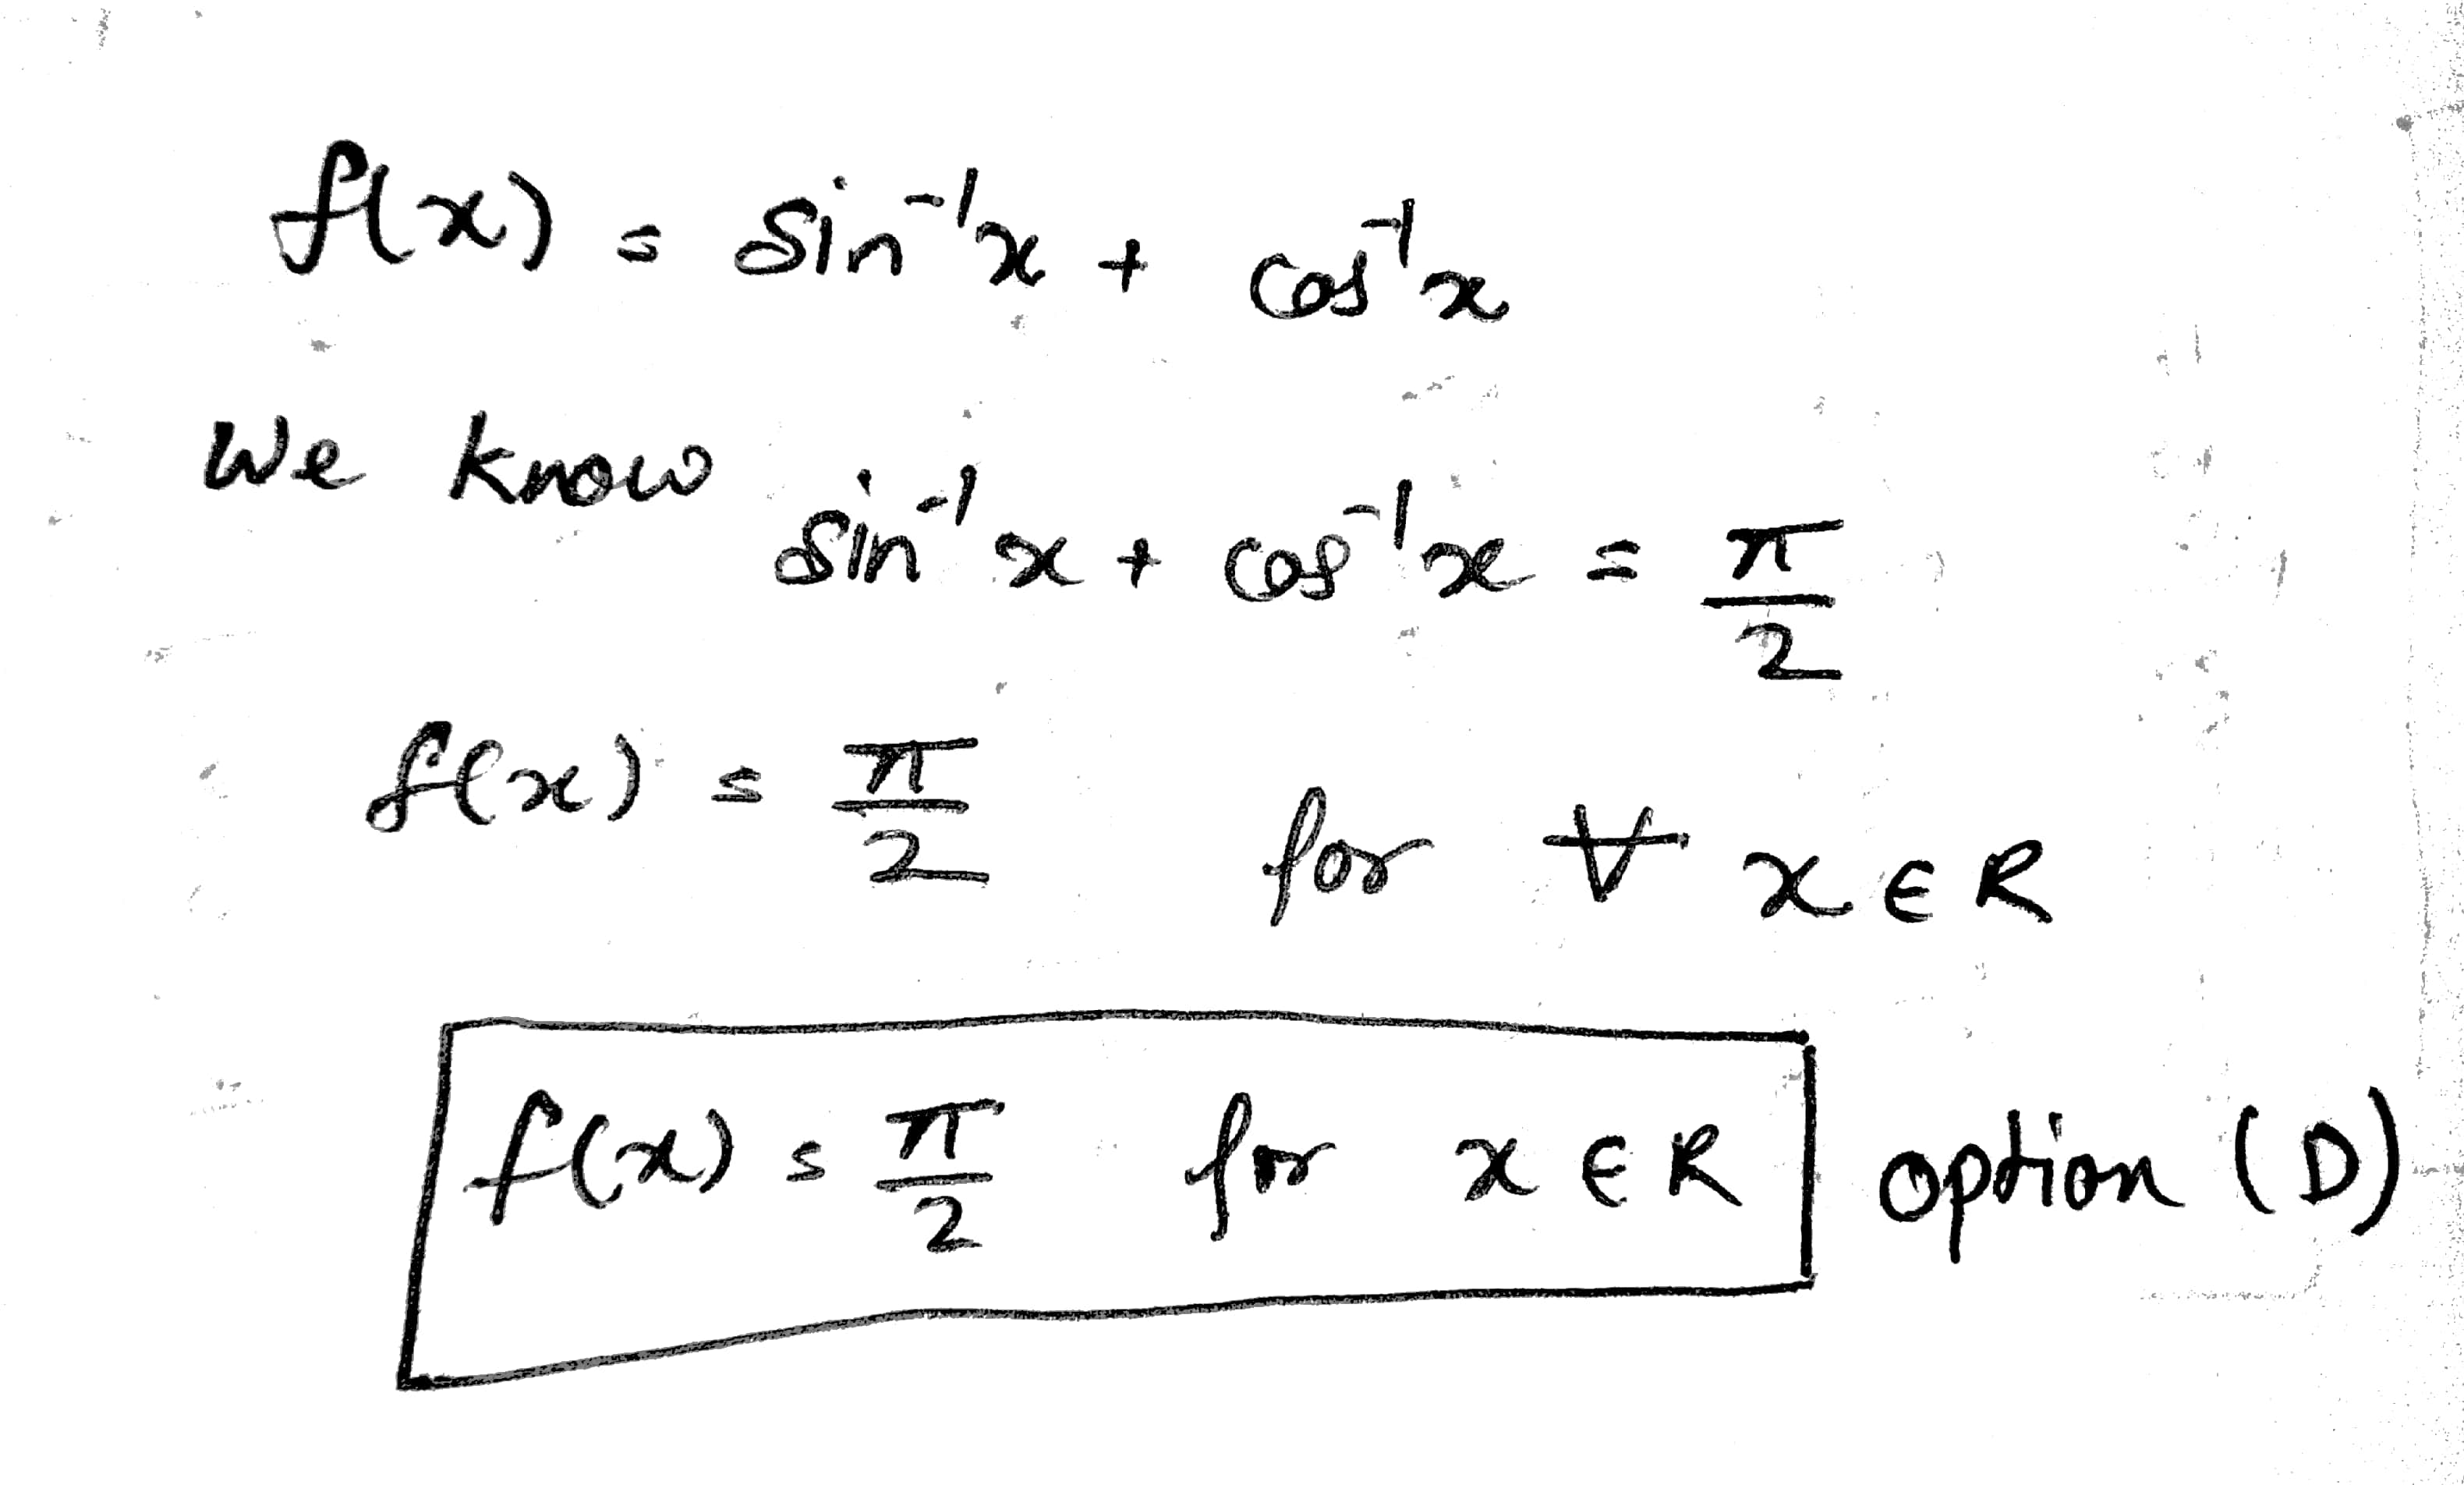 f(x) = sin⁻¹x + cos⁻¹x
We know
sin⁻¹x + cos⁻¹x = π/2
f(x) = π/2 for ∀ x ∈ R
f(x) = π/2 for x ∈ R option (D)